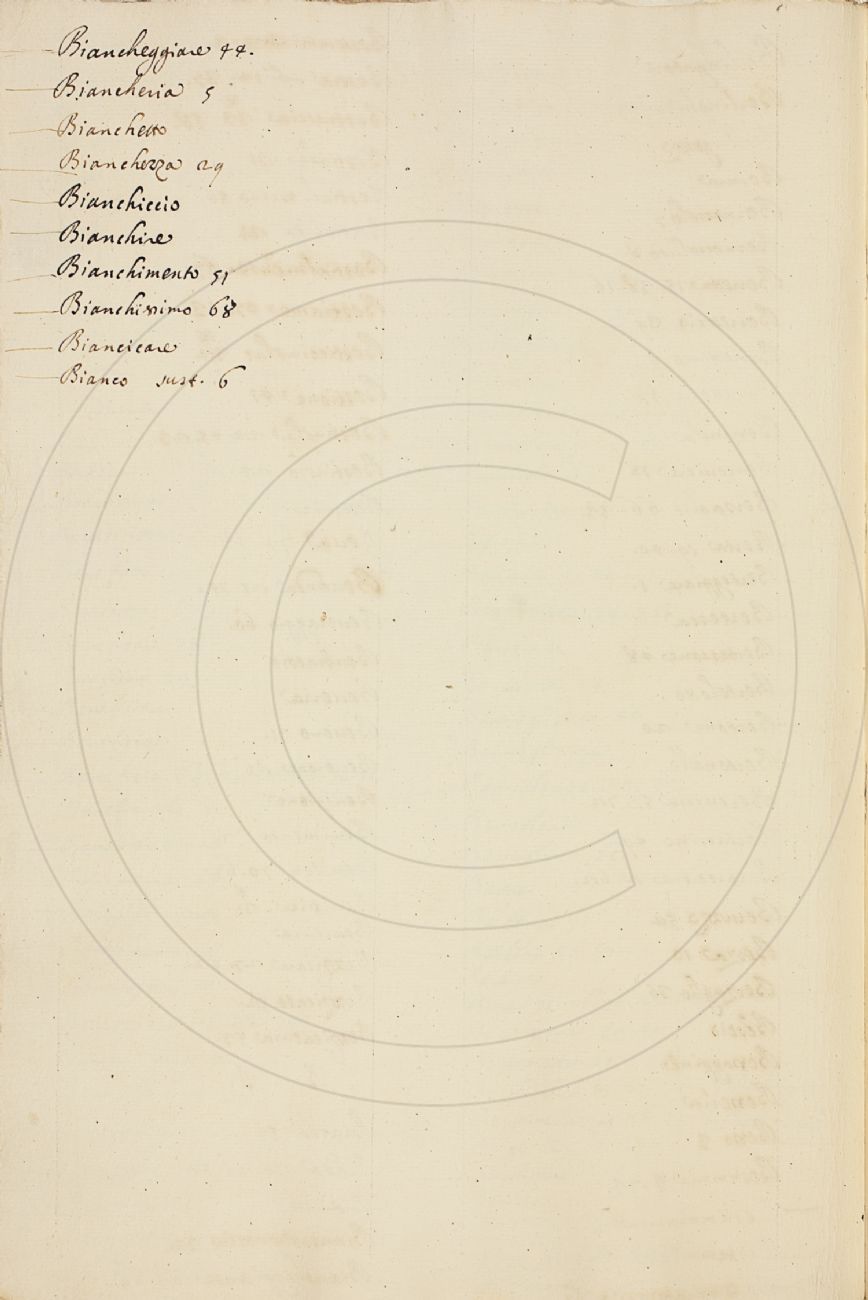 Biancheggiare 44.
Biancheria 5
Bianchetto
Bianchezza 29
Bianchiccio
Bianchire
Bianchimento 51
Bianchissimo 68
Biancicare
Bianco sust. 6